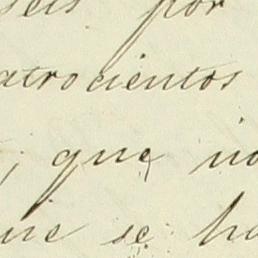 seis por
atrocientos
; que no
ue se ha